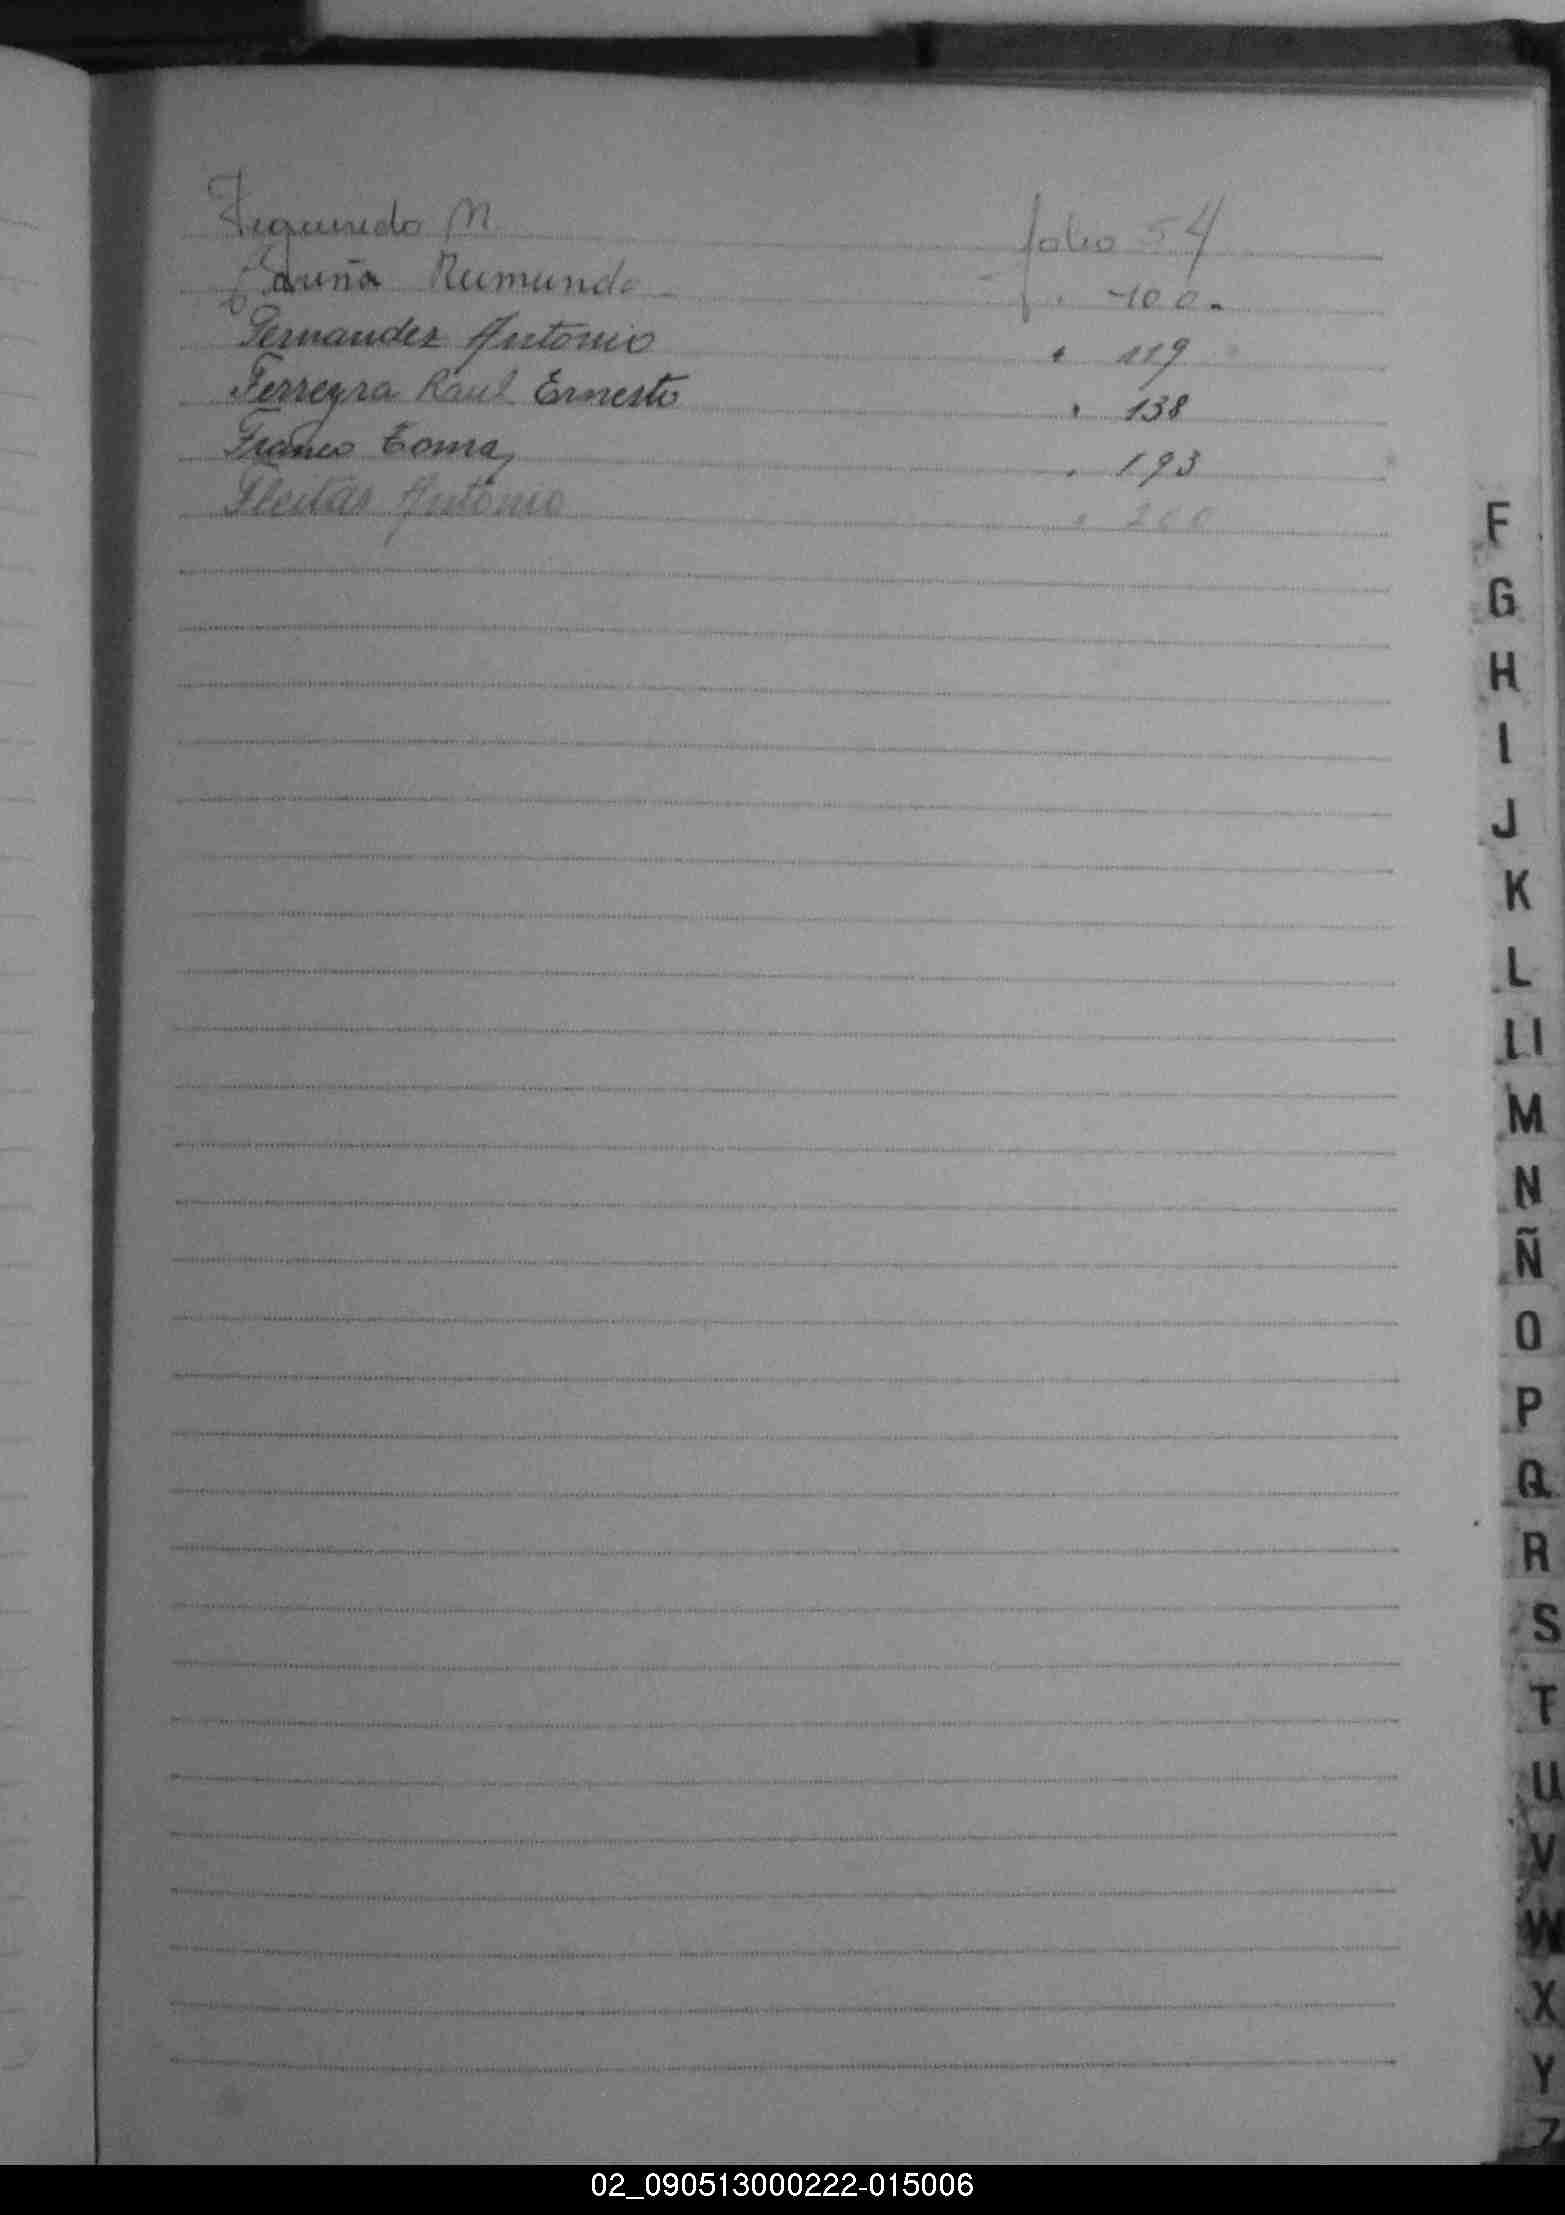 Figueredo M folio 54
Fariña Rumundo " 100.
Fernandez Antonio " 119
Ferreyra Raul Ernesto " 138
Franco Tomaz " 193
Fleitas Antonio " 200
F
G
H
I
J
K
L
Ll
M
N
Ñ
O
P
Q
R
S
T
U
V
W
X
Y
Z
02_090513000222-015006